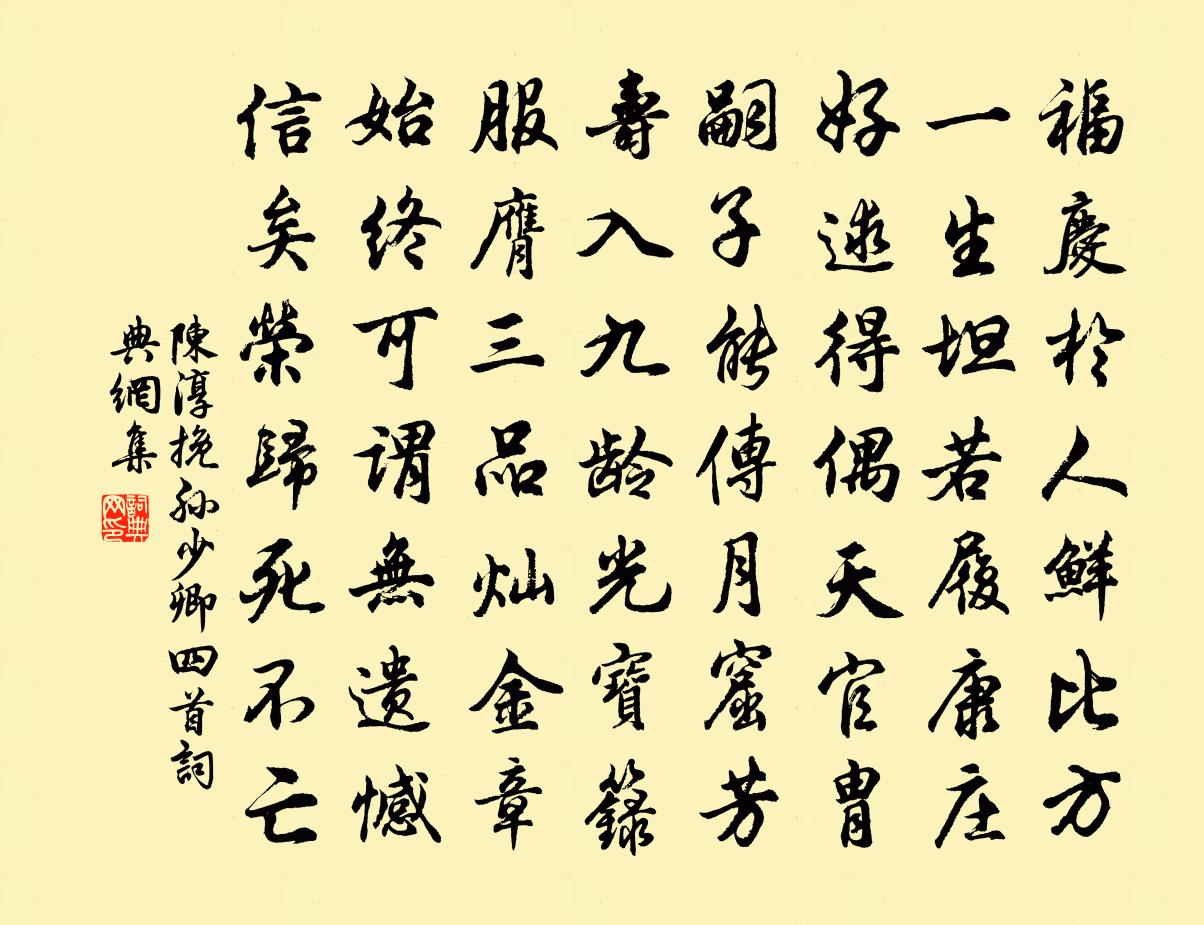 福慶於人鮮比方
一生坦若履康庄
好逑得偶天官胄
嗣子能傳月窟芳
壽入九龄光寶籙
服膺三品灿金章
始终可谓無遗憾
信矣榮歸死不亡
陳淳挽孙少卿四首詞
典網集
詞典
网印